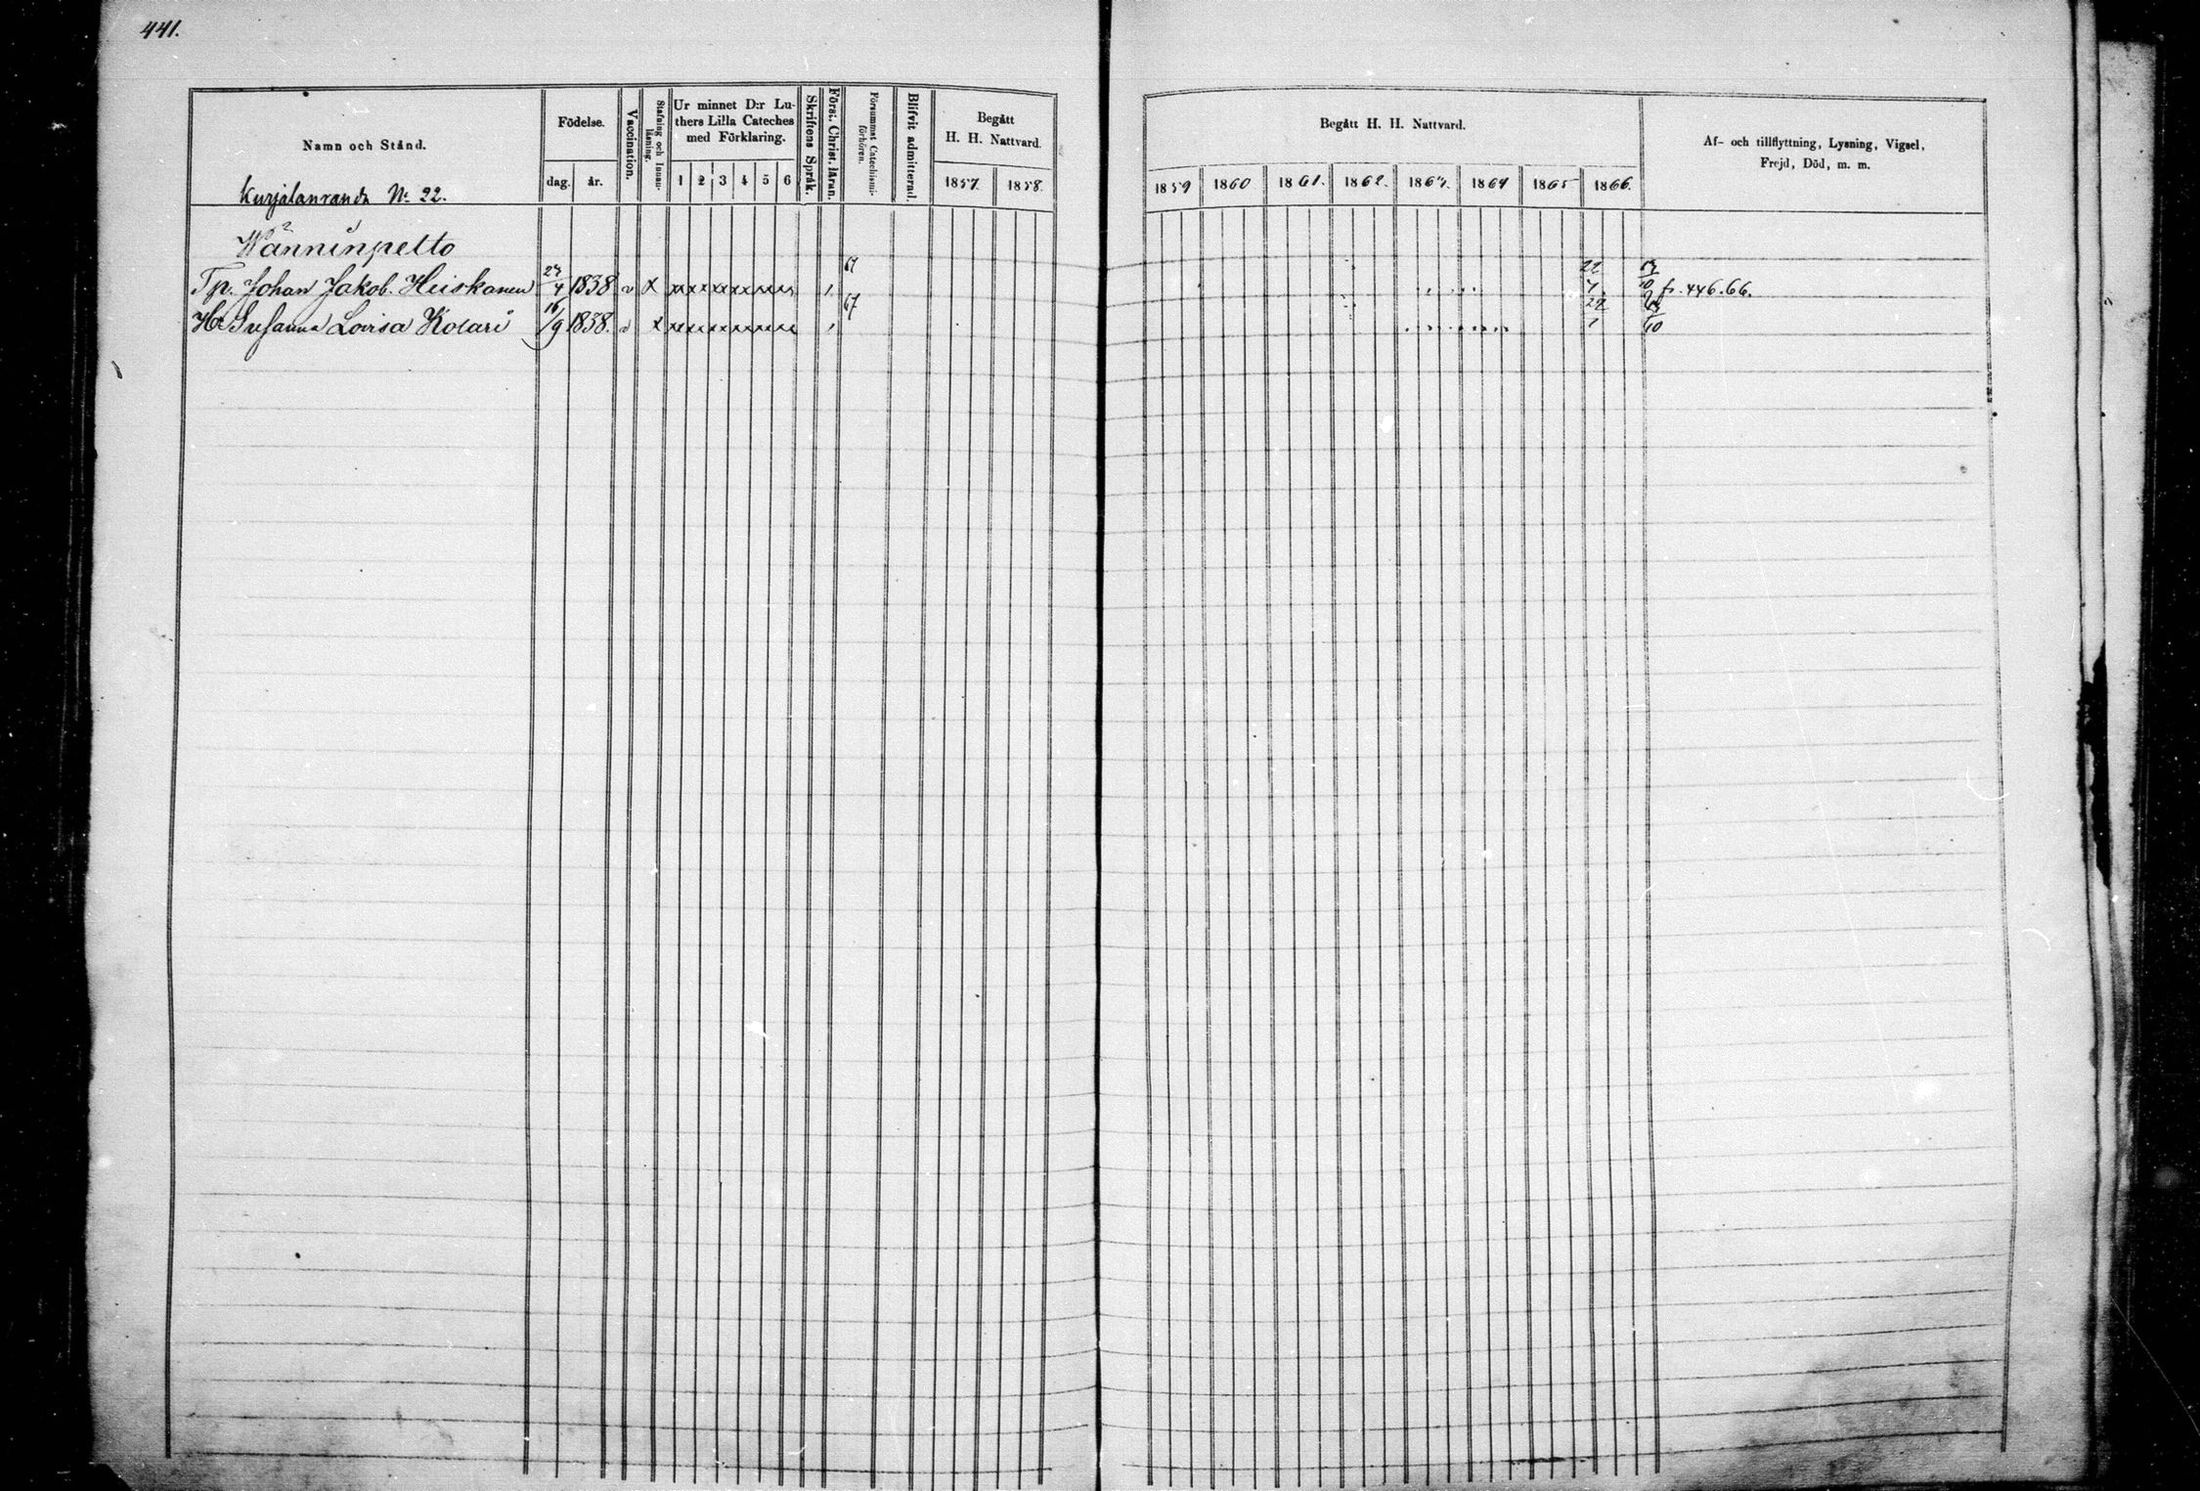 441.
Namn och Stånd.
Födelse.
dag. år.
Vaccination.
Stafning och Innanläsning.
Ur minnet D:r Luthers Lilla Cateches med Förklaring.
1 2 3 4 5 6
Skriftens Språk.
Förs:. Christ. läran.
Försummat Catechismiförhören.
Blifvit admitterad.
Begått H. H. Nattvard.
1857. 1858.
Begått H. H. Nattvard.
1859 1860 1861. 1862. 1863. 1864 1865 1866.
Af- och tillflyttning, Lysning, Vigsel,
Frejd, Död, m. m.
Kurjalanranda No 22.
Wänninpelto
Tp. Johan Jakob Heiskanen 27/4 1838 v x 67 22/4 10 fr. 446.66.
H. Susanna Lovisa Kolari 16/9 1838. v x 67 22/1 10